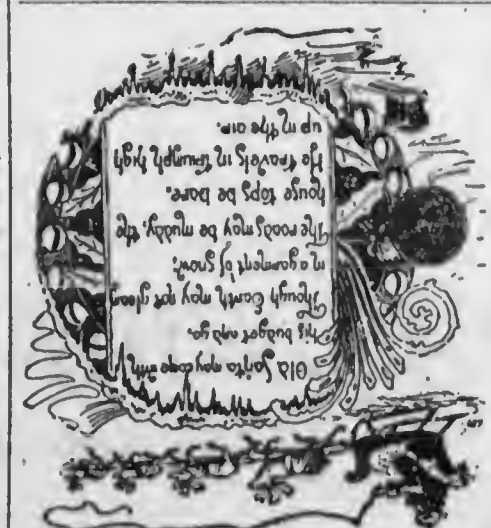 Old Santa may come with
his budget and go.
Though Earth may not gleam
in a garment of snow.
The roads may be muddy, the
house tops be bare.
He travels in triumph high
up in the air.